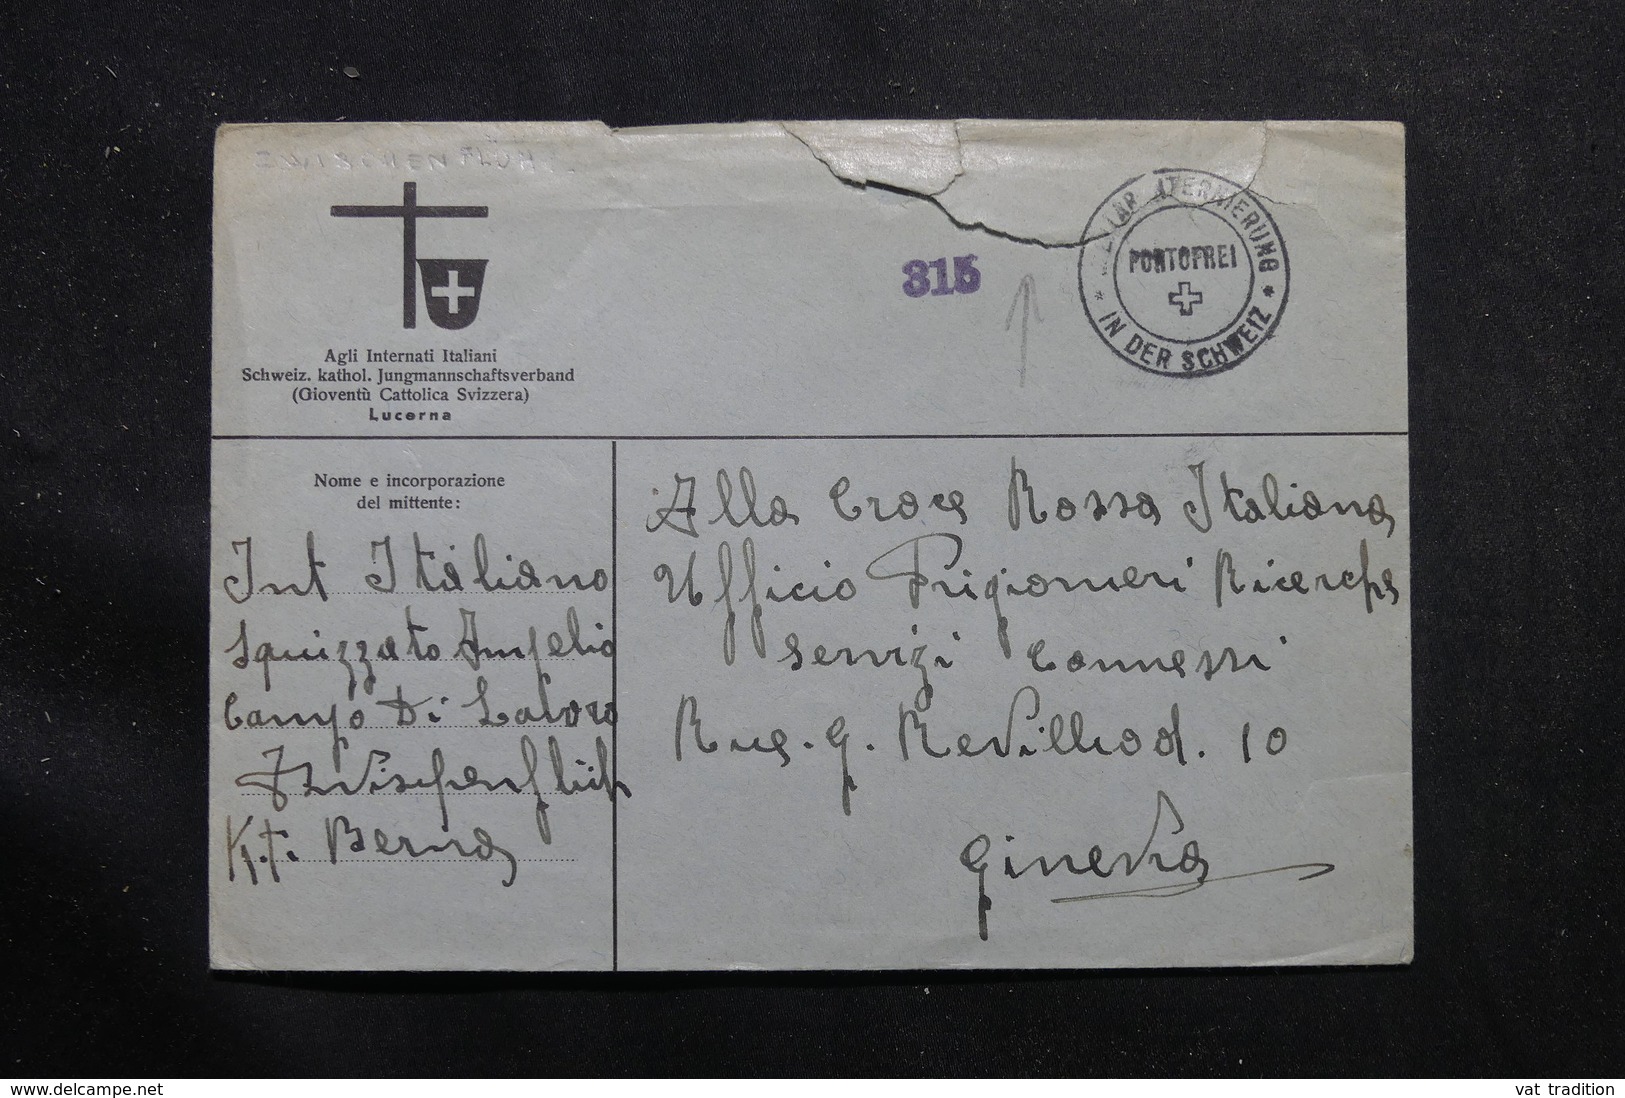 ZWISCHENFLÜH
Agli Internati Italiani
Schweiz. kathol. Jungmannschaftsverband
(Gioventù Cattolica Svizzera)
Lucerna
315
PORTOFREI
IN DER SCHWEIZ
Nome e incorporazione
del mittente:
Int Italiano
Squizzato Angelio
Campo Di Lavoro
Zwischenflüh
Kt. Berna
Alla Croce Rossa Italiana
Ufficio Prigionieri Ricerche
servizi Connessi
Rue. G. Revilliod. 10
Ginevra
delcampe.net
vat tradition